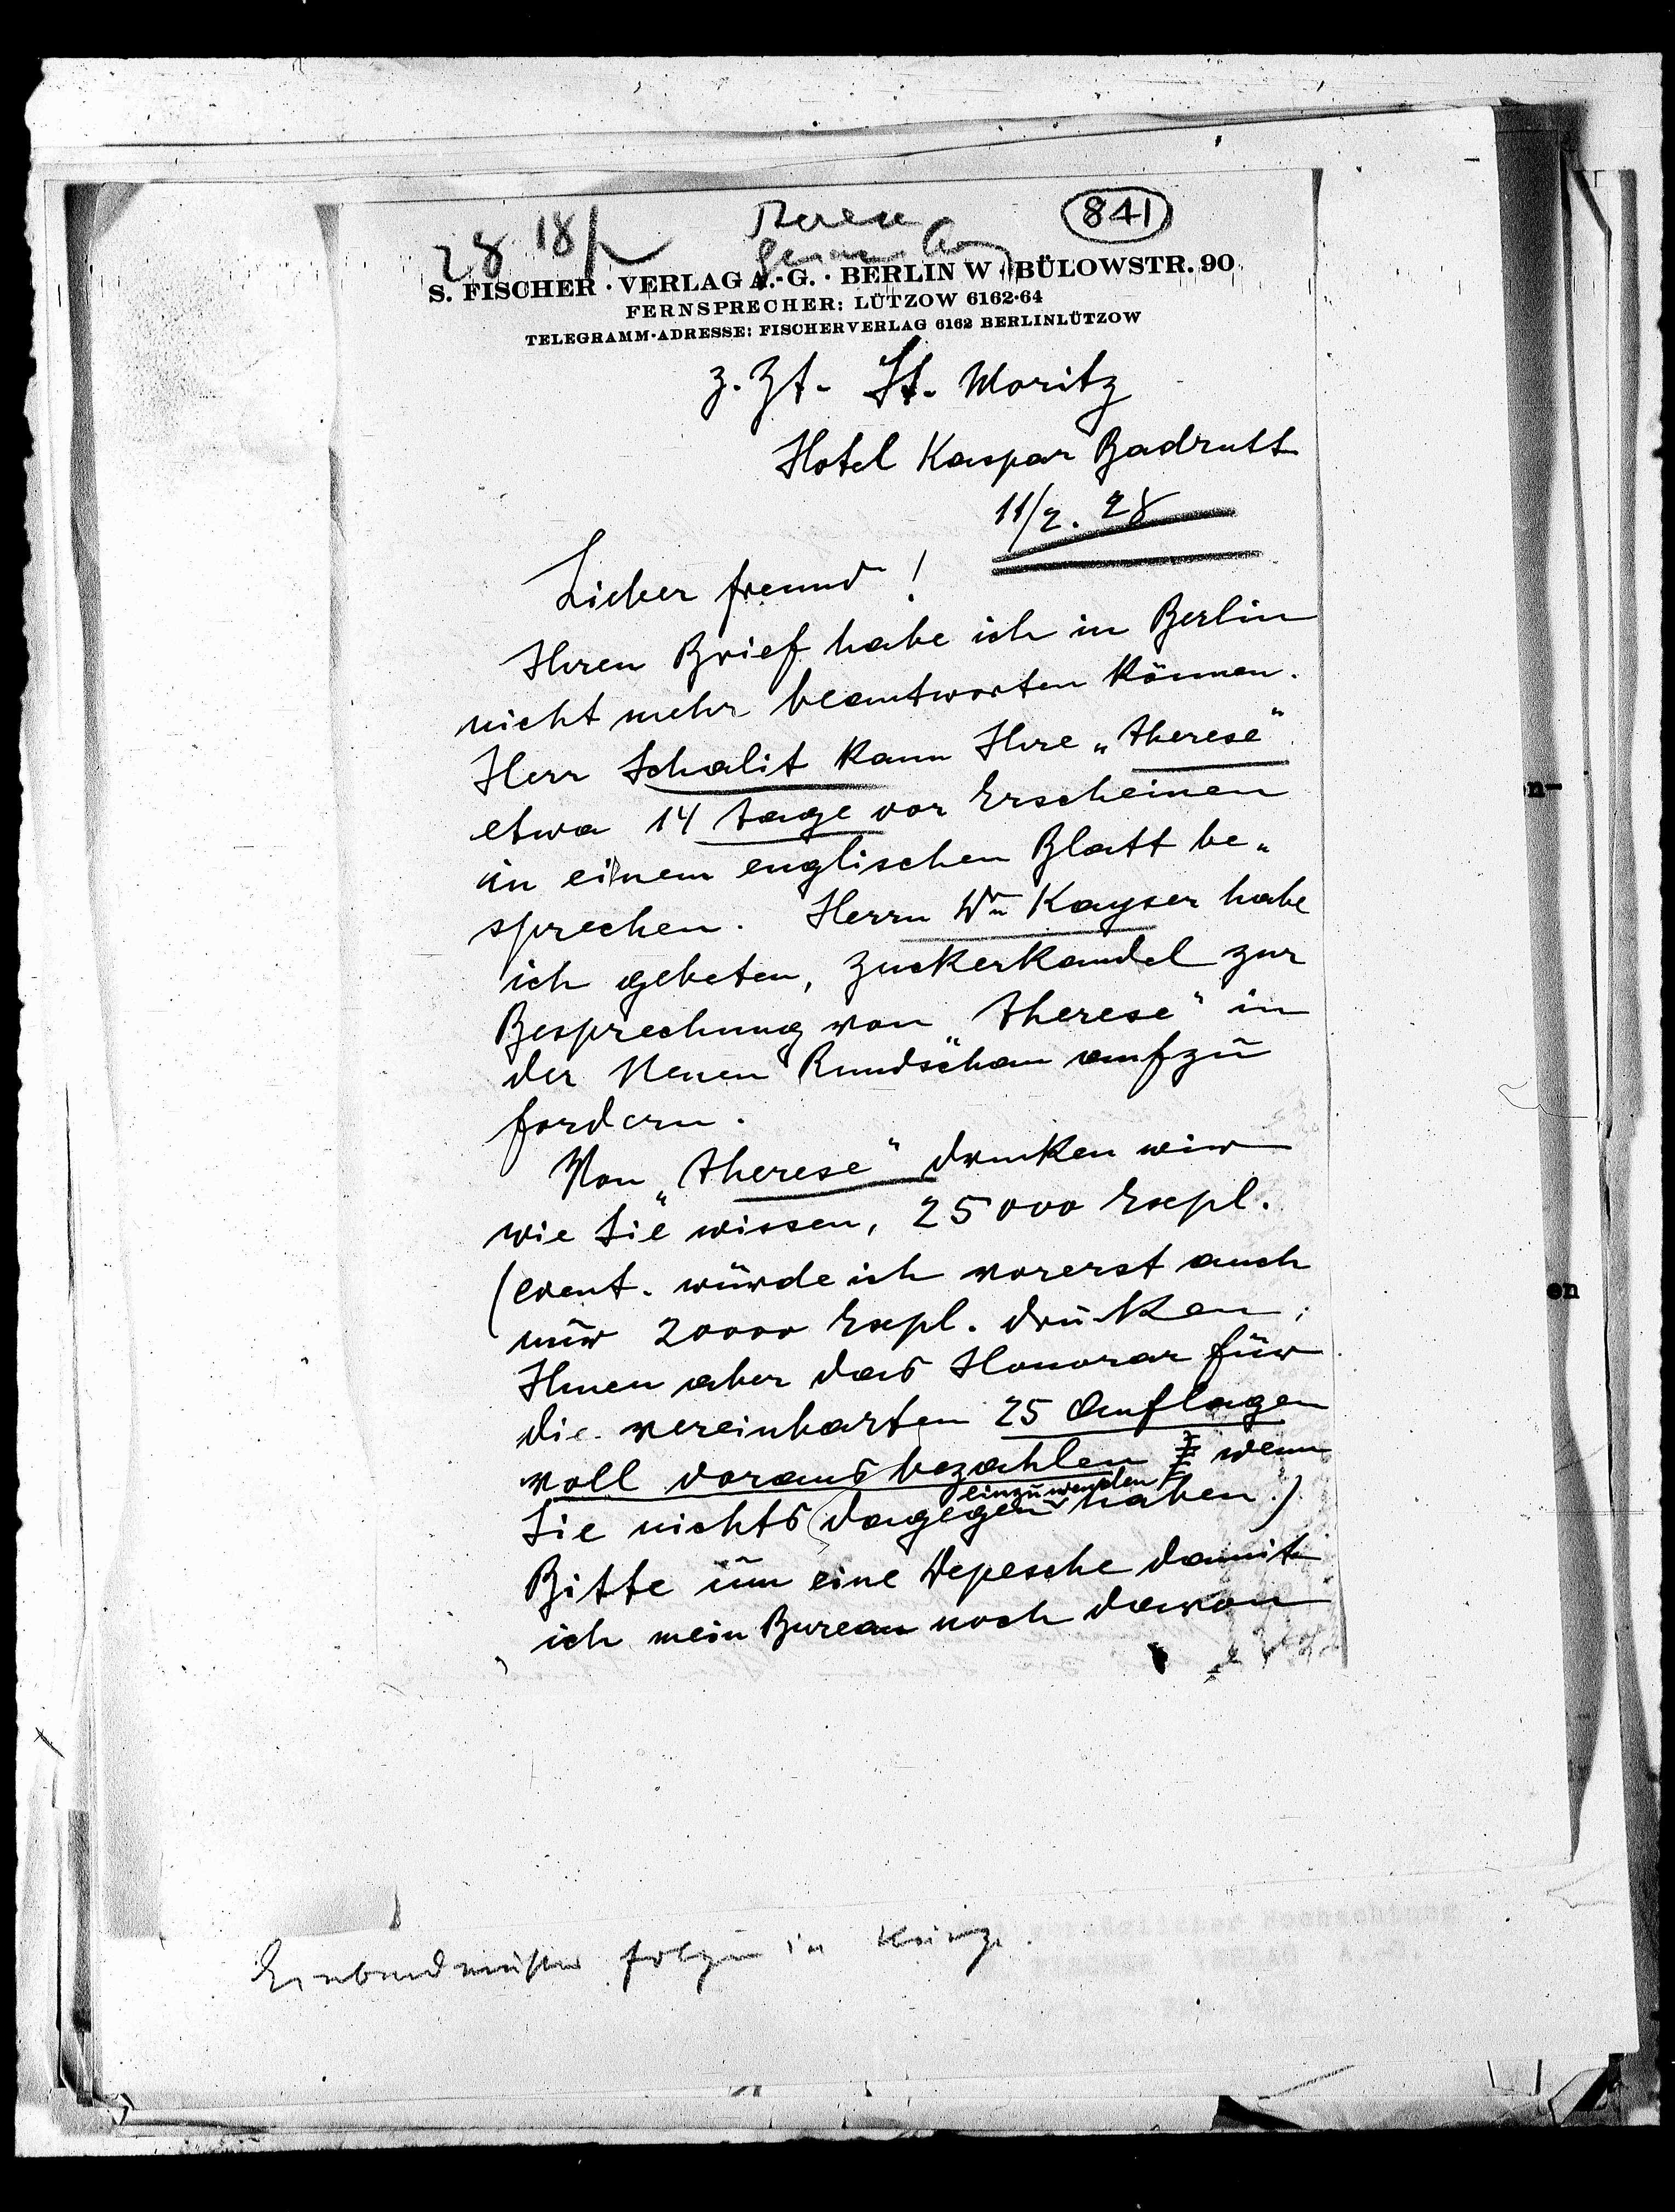 841
28 18/
S. FISCHER · VERLAG A.-G. · BERLIN W · BÜLOWSTR. 90
FERNSPRECHER: LÜTZOW 6162-64
TELEGRAMM-ADRESSE: FISCHERVERLAG 6162 BERLINLÜTZOW
z. Zt. St. Moritz
Hotel Kaspar Badrutt
11/2. 28
Lieber Freund!
Ihren Brief habe ich in Berlin
nicht mehr beantworten können.
Herr Schalit kann Ihre „Therese"
etwa 14 Tage vor Erscheinen
in einem englischen Blatt be-
sprechen. Herrn Dr Kayser habe
ich gebeten, Zuckerkandel zur
Besprechung von „Therese" in
der Neuen Rundschau aufzu
fordern.
Von „Therese" drucken wir
wie Sie wissen, 25000 Expl.
(event. würde ich vorerst auch
nur 20000 Expl. drucken,
Ihnen aber das Honorar für
die vereinbarten 25 Auflagen
voll vorausbezahlen wenn
Sie nichts dagegen einzuwenden haben.)
Bitte um eine Depesche damit
ich mein Bureau noch davon
Einbandmuster folgen in Kürze.
en